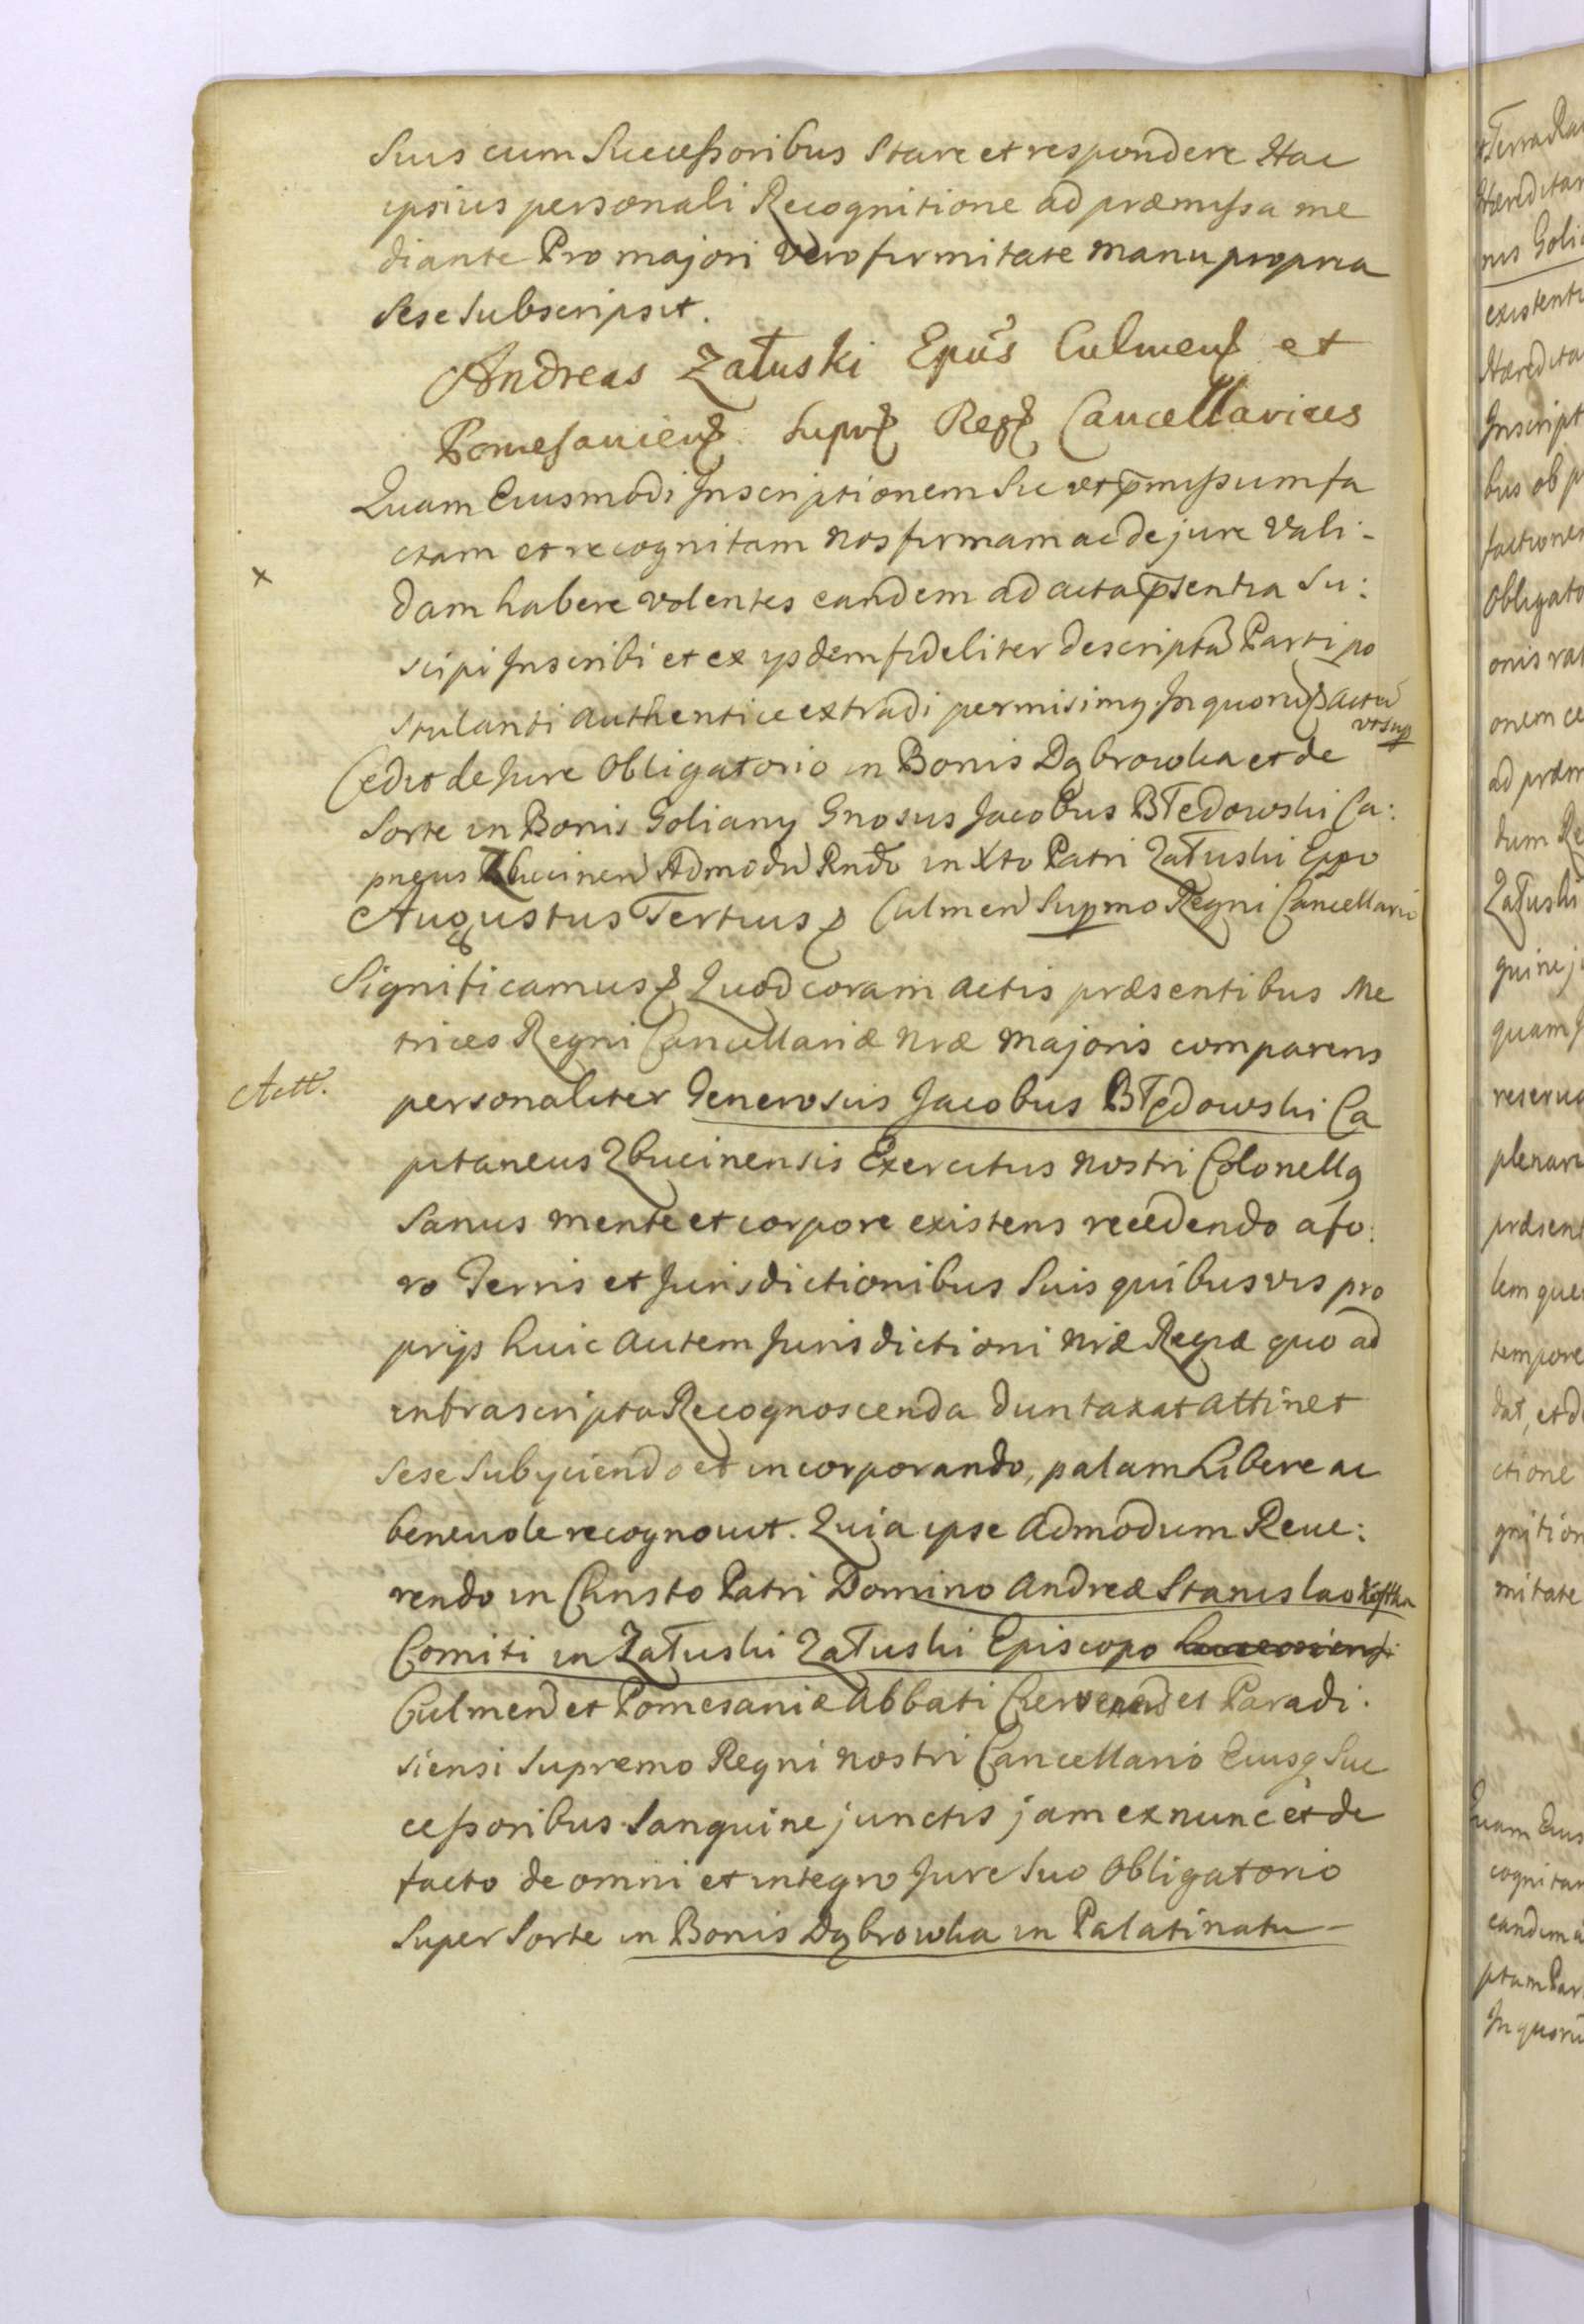 Suis cum Successoribus Stare et respondere Hac
ipsius personali Recognitione ad præmissa me
diante Pro majori vero firmitate manu propria
Sese Subscripsit.
Andreas Załuski Epũs Culmens et
Pomesaniens. Supr Reg Cancellarius
Quam Eiusmodi Inscriptionem Sic ut p̃missum fa
ctam et recognitam nos firmam ac de jure vali-
x
dam habere volentes eandem ad acta p̃sentia Su:
scipi Inscribi et ex ijsdem fideliter descriptã Parti po
stulanti authentice extradi permisimq. In quorũ Actũ
ut sup
Cedit de Jure Obligatorio in Bonis Dąbrowka et de
Sorte in Bonis Goliany Gnosus Jacobus Błedowski Ca:
pneus Zbucinen Admodũ Rndo in Xto Patri Załuski Eppo
Augustus Tertius Culmen Supmo Regni Cancellario
Significamus Quod coram actis præsentibus Me
trices Regni Cancellariæ nræ majoris comparens
Actt.
personaliter Generosus Jacobus Błędowski Ca
pitaneus Zbucinensis Exercitus nostri Colonellq
Sanus mente et corpore existens recedendo a fo:
ro Terris et Jurisdictionibus Suis quibusvis pro
prijs huic autem Jurisdictioni nræ Regiæ quo ad
infrascripta Recognoscenda duntaxat attinet
sese Subyciendo et incorporando, palam Libere ac
beneuole recognouit. Quia ipse Admodum Reue:
rendo in Christo Patri Domino Andreæ Stanislao Kostka
Comiti in Załuski Załuski Episcopo
Culmen et Pomesaniæ Abbati Czerwenen et Paradi:
siensi Supremo Regni nostri Cancellario Eiusq Suc
cessoribus Sanguine junctis jam ex nunc et de
facto de omni et integro Jure Suo Obligatorio
Super Sorte in Bonis Dąbrowka in Palatinatu-